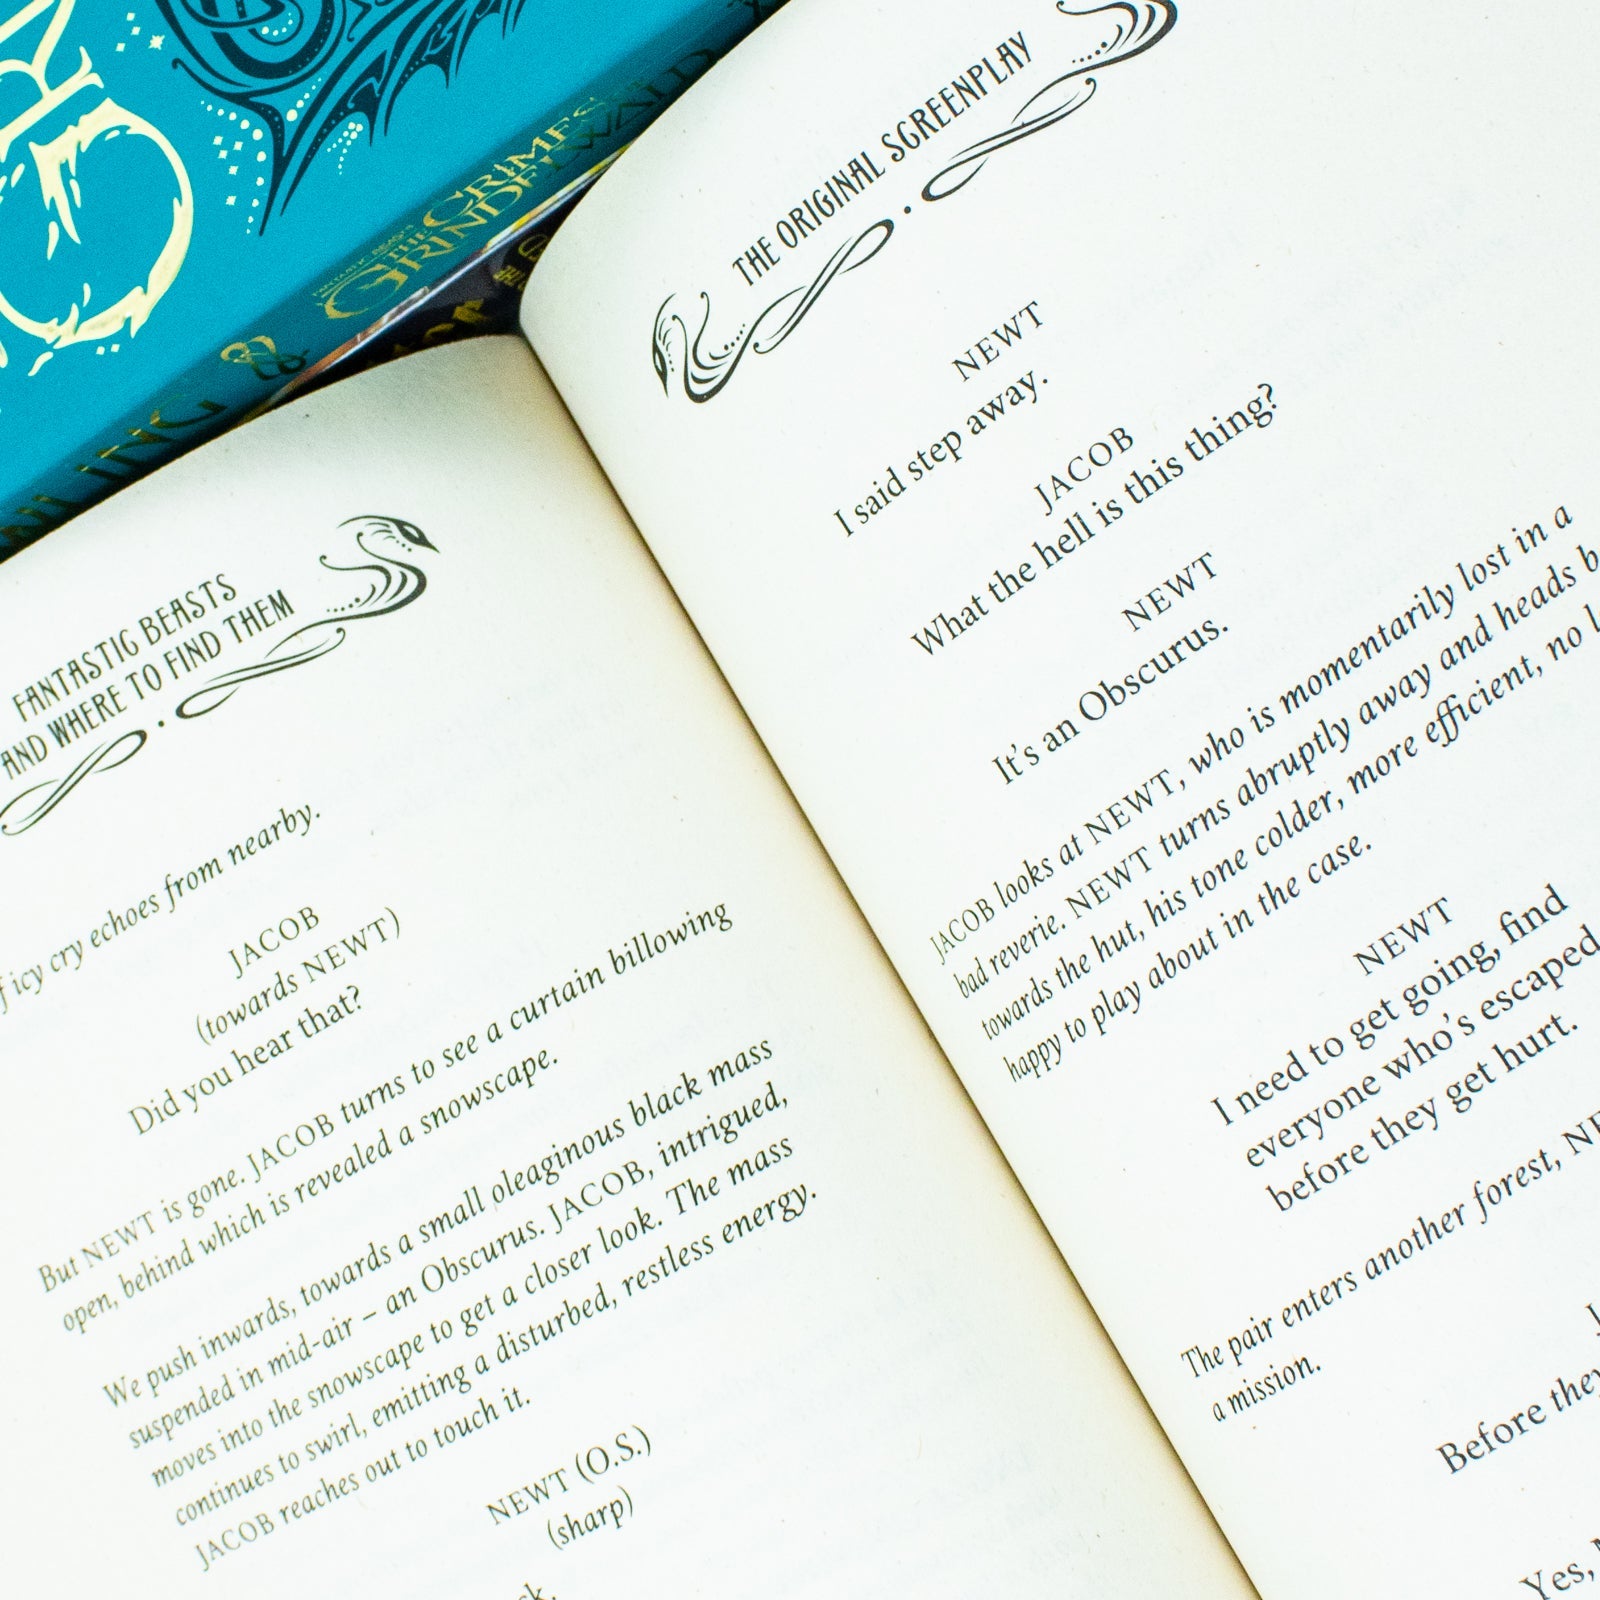 FANTASTIC BEASTS
THE CRIMES
GRINDELWALD
FANTASTIC BEASTS
AND WHERE TO FIND THEM
icy cry echoes from nearby.
JACOB
(towards NEWT)
Did you hear that?
But NEWT is gone. JACOB turns to see a curtain billowing
open, behind which is revealed a snowscape.
We push inwards, towards a small oleaginous black mass
suspended in mid-air – an Obscurus. JACOB, intrigued,
moves into the snowscape to get a closer look. The mass
continues to swirl, emitting a disturbed, restless energy.
JACOB reaches out to touch it.
NEWT (O.S.)
(sharp)
THE ORIGINAL SCREENPLAY
NEWT
I said step away.
JACOB
What the hell is this thing?
NEWT
It's an Obscurus.
JACOB looks at NEWT, who is momentarily lost in a
bad reverie. NEWT turns abruptly away and heads
towards the hut, his tone colder, more efficient, no
happy to play about in the case.
NEWT
I need to get going, find
everyone who's escaped
before they get hurt.
The pair enters another forest,
a mission.
Before they
Yes,